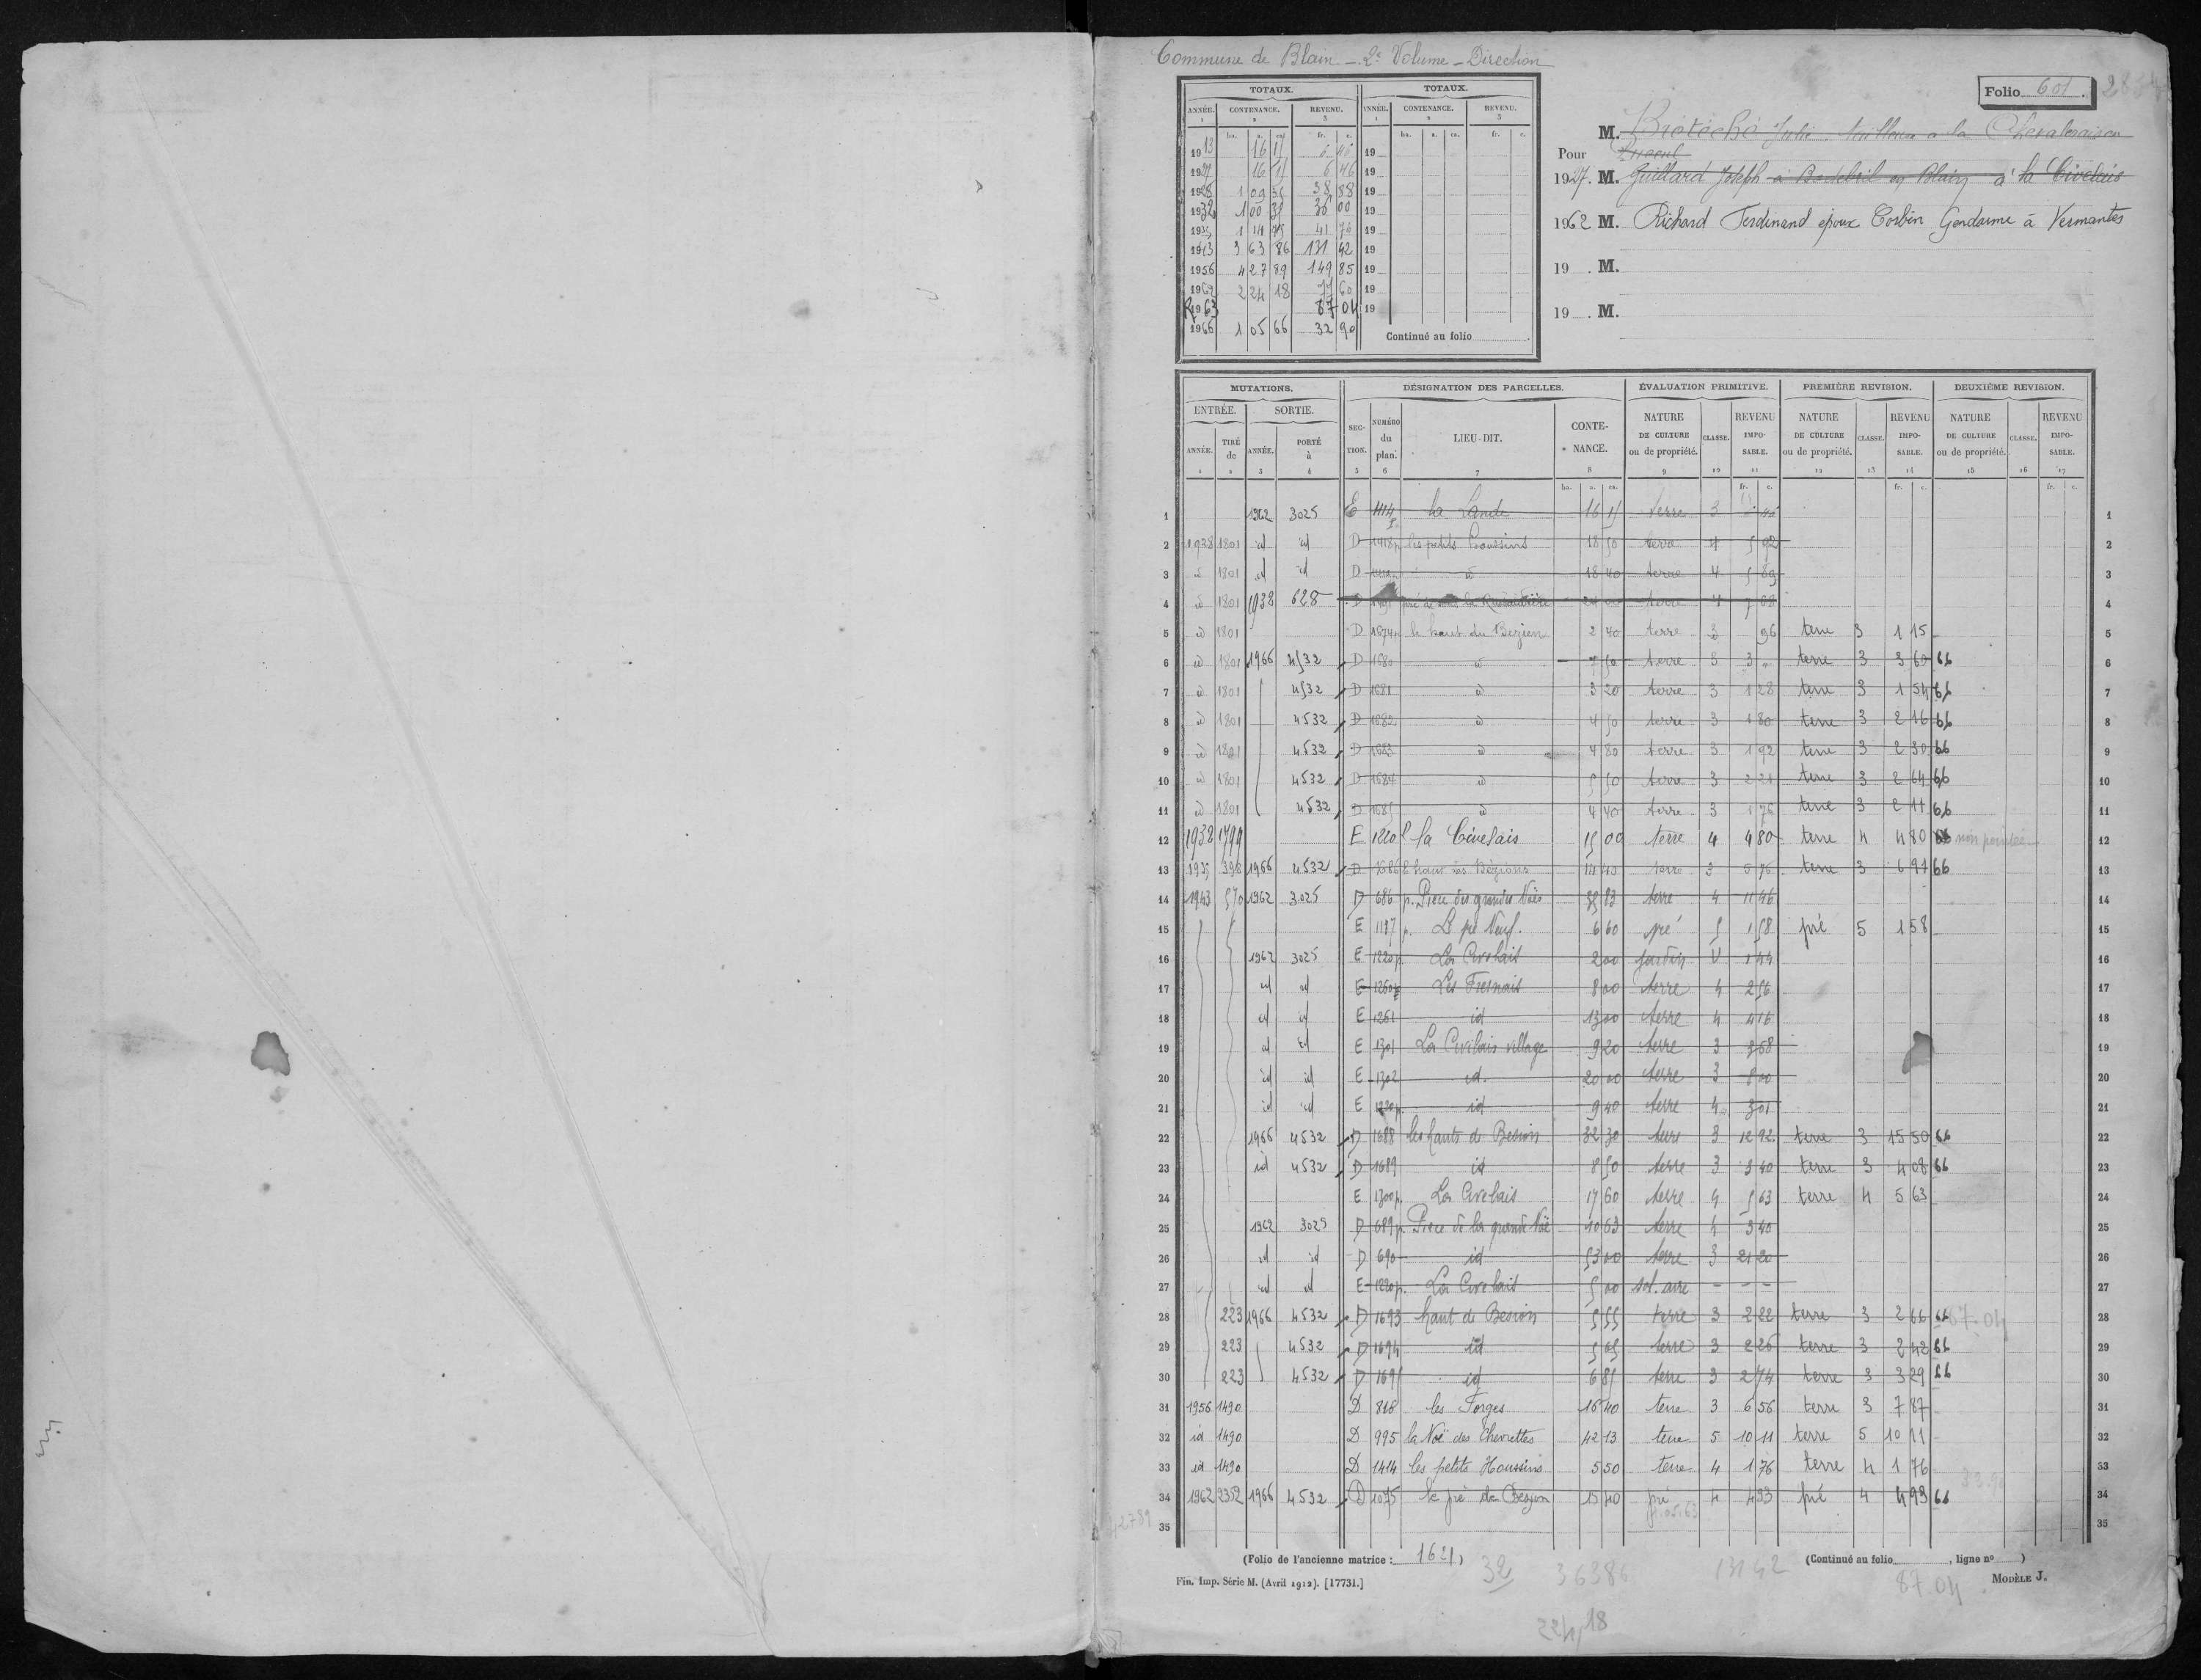 Commune de Blain - 2e Volume - Direction
Folio 601.
TOTAUX. TOTAUX.
ANNÉE. CONTENANCE. REVENU. ANNÉE. CONTENANCE. REVENU.
1 2 3 1 2 3
ha. a. ca. fr. c. ha. a. ca. fr. c.
1913 16 15 6 46 19
1927 16 15 6 46 19
1938 1 09 35 38 88 19
1932 1 00 35 36 00 19
1935 1 14 75 41 76 19
1943 3 63 86 131 42 19
1956 4 27 89 149 85 19
1962 2 24 18 60 19
R 1963 87 04 19
1966 1 05 66 32 90
Continué au folio
M. Brétéché Julie
Pour
1927. M. Guillard Joseph à en Blain à la Civelais
1962 M. Richard Ferdinand époux Corbin Gendarme à Vernantes
19 . M.
19 . M.
MUTATIONS. DÉSIGNATION DES PARCELLES. ÉVALUATION PRIMITIVE. PREMIÈRE REVISION. DEUXIÈME REVISION.
ENTRÉE. SORTIE.
ANNÉE. TIRÉ de ANNÉE. PORTÉ à SECTION. NUMÉRO du plan. LIEU-DIT. CONTENANCE. NATURE DE CULTURE ou de propriété. CLASSE. REVENU IMPOSABLE. NATURE DE CULTURE ou de propriété. CLASSE. REVENU IMPOSABLE. NATURE DE CULTURE ou de propriété. CLASSE. REVENU IMPOSABLE.
1 2 3 4 5 6 7 8 9 10 11 12 13 14 15 16 17
ha. a. ca. fr. c. fr. c. fr. c.
1 1962 3025 E 1114 p. la Lande 16 15 terre 3 6 46 1
2 1938 1801 id id D 1418 p les petits Houssins 18 50 terre 4 5 92 2
3 id 1801 id id D id 18 40 terre 4 5 89 3
4 id 1801 1938 628 D terre 4 7 68 4
5 id 1801 D 1674 p le haut du Bezien 2 40 terre 3 96 terre 3 1 15 5
6 id 1801 1966 4532 D 1680 id 7 50 terre 3 3 " terre 3 3 60 66 6
7 id 1801 4532 D 1681 id 3 20 terre 3 1 28 terre 3 1 54 66 7
8 id 1801 4532 D 1682 id 4 50 terre 3 1 80 terre 3 2 16 66 8
9 id 1801 4532 D 1683 id 4 80 terre 3 1 92 terre 3 2 30 66 9
10 id 1801 4532 D 1684 id 5 50 terre 3 2 21 terre 3 2 64 66 10
11 id 1801 4532 D 1685 id 4 40 terre 3 1 76 terre 3 2 11 66 11
12 1932 1799 E 1220 p la Civelais 15 00 terre 4 4 80 terre 4 4 80 12
13 1935 398 1966 4532 D 1686 haut des Bézions 14 40 terre 3 5 76 terre 3 6 91 66 13
14 1943 570 1962 3025 D 686 p. Pièce des grandes Noës 35 83 terre 4 11 46 14
15 E 1187 p. Le pré Neuf. 6 60 pré 5 1 58 pré 5 1 58 15
16 1962 3025 E 1220 p La Civelais 2 00 jardin U 1 44 16
17 id id E 1260 p Les Fresnais 8 00 terre 4 2 56 17
18 id id E 1261 id 13 00 terre 4 4 16 18
19 id id E 1301 La Civelais village 9 20 terre 3 3 68 19
20 id id E 1302 id. 20 00 terre 3 8 00 20
21 id id E 1220 p. id 9 40 terre 4 3 01 21
22 1966 4532 D 1688 les hauts de Besion 32 30 terre 3 12 92 terre 3 15 50 66 22
23 id 4532 D 1689 id 8 50 terre 3 3 40 terre 3 4 08 66 23
24 E 1300 p. La Civelais 17 60 terre 4 5 63 terre 4 5 63 24
25 1962 3025 D 689 p. Pièce de la grande Noë 10 63 terre 4 3 40 25
26 id id D 690 id 53 00 terre 3 21 20 26
27 id id E 1220 p. La Civelais 5 00 sol. aire - - - 27
28 223 1966 4532 D 1693 haut de Besion 5 55 terre 3 2 22 terre 3 2 66 66 87.04 28
29 223 4532 D 1694 id 5 65 terre 3 2 26 terre 3 2 42 66 29
30 223 4532 D 1695 id 6 85 terre 3 2 74 terre 3 3 29 66 30
31 1956 1490 D 818 les Forges 16 40 terre 3 6 56 terre 3 7 87 31
32 id 1490 D 995 la Noë des Chevrettes 42 13 terre 5 10 11 terre 5 10 11 32
33 id 1490 D 1414 les petits Houssins 5 50 terre 4 1 76 terre 4 1 76 33
34 1962 2352 1966 4532 D 1075 le pré de Bezion 15 40 pré 4 4 93 pré 4 4 93 66 34
35 35
(Folio de l'ancienne matrice : 1621) (Continué au folio , ligne no )
32 36386 13142 87.04
Fin. Imp. Série M. (Avril 1912). [17731.] MODÈLE J.
224,18